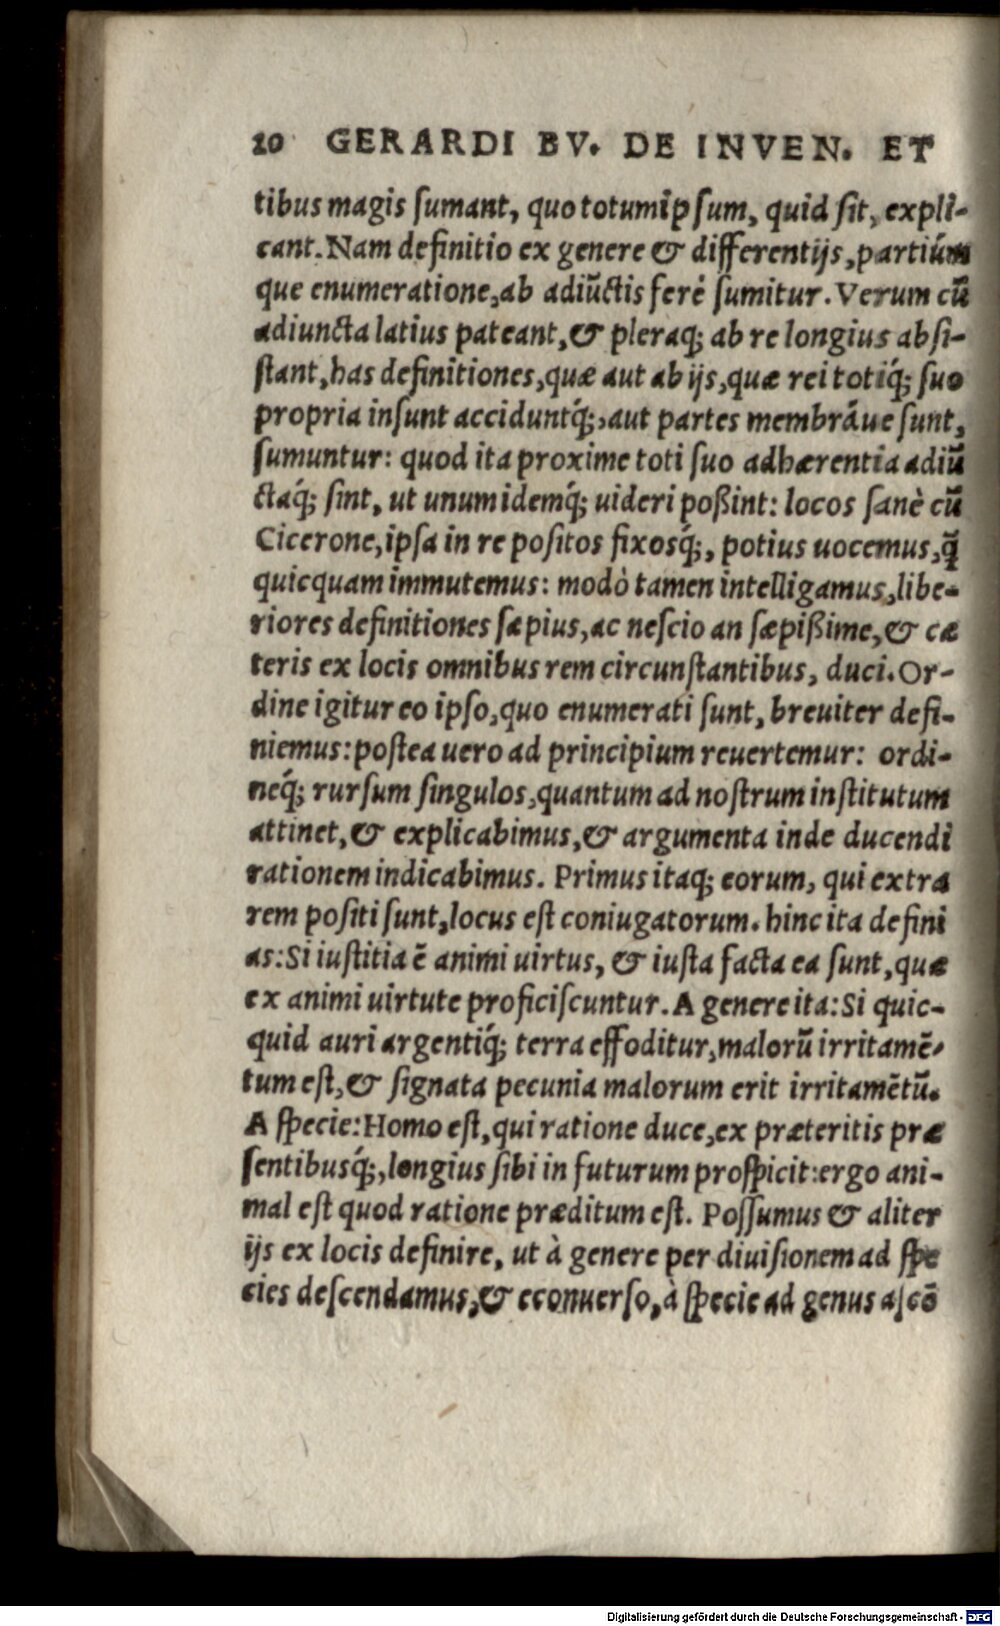 20 GERARDI BV. DE INVEN. ET
tibus magis ſumant, quo totum ipſum, quid ſit, expli-
cant. Nam definitio ex genere & differentijs, partiúm
que enumeratione, ab adiūctis ferè ſumitur. Verum cū
adiuncta latius pateant, & pleraq; ab re longius abſi-
ſtant, has definitiones, quæ aut ab ijs, quæ rei totiq́; ſuo
propria inſunt acciduntq́;, aut partes membráue ſunt,
ſumuntur: quod ita proxime toti ſuo adhærentia adiū
ctaq́; ſint, ut unum idemq́; uideri poßint: locos ſanè cū
Cicerone, ipſa in re poſitos fixosq́;, potius uocemus, q̃
quicquam immutemus: modò tamen intelligamus, libe-
riores definitiones ſæpius, ac neſcio an ſæpißime, & cæ
teris ex locis omnibus rem circunſtantibus, duci. Or-
dine igitur eo ipſo, quo enumerati ſunt, breuiter defi-
niemus: poſtea uero ad principium reuertemur: ordi-
neq́; rurſum ſingulos, quantum ad noſtrum inſtitutum
attinet, & explicabimus, & argumenta inde ducendi
rationem indicabimus. Primus itaq; eorum, qui extra
rem poſiti ſunt, locus eſt coniugatorum. hinc ita defini
as: Si iuſtitia ē animi uirtus, & iuſta facta ea ſunt, quæ
ex animi uirtute proficiſcuntur. A genere ita: Si quic-
quid auri argentiq́; terra effoditur, malorū irritamē-
tum eſt, & ſignata pecunia malorum erit irritamētū.
A ſpecie: Homo eſt, qui ratione duce, ex præteritis præ
ſentibusq́;, longius ſibi in futurum proſpicit: ergo ani-
mal eſt quod ratione præditum eſt. Poſſumus & aliter
ijs ex locis definire, ut à genere per diuiſionem ad ſpe
cies deſcendamus, & econuerſo, à ſpecie ad genus aſcō
Digitalisierung gefördert durch die Deutsche Forschungsgemeinschaft - DFG